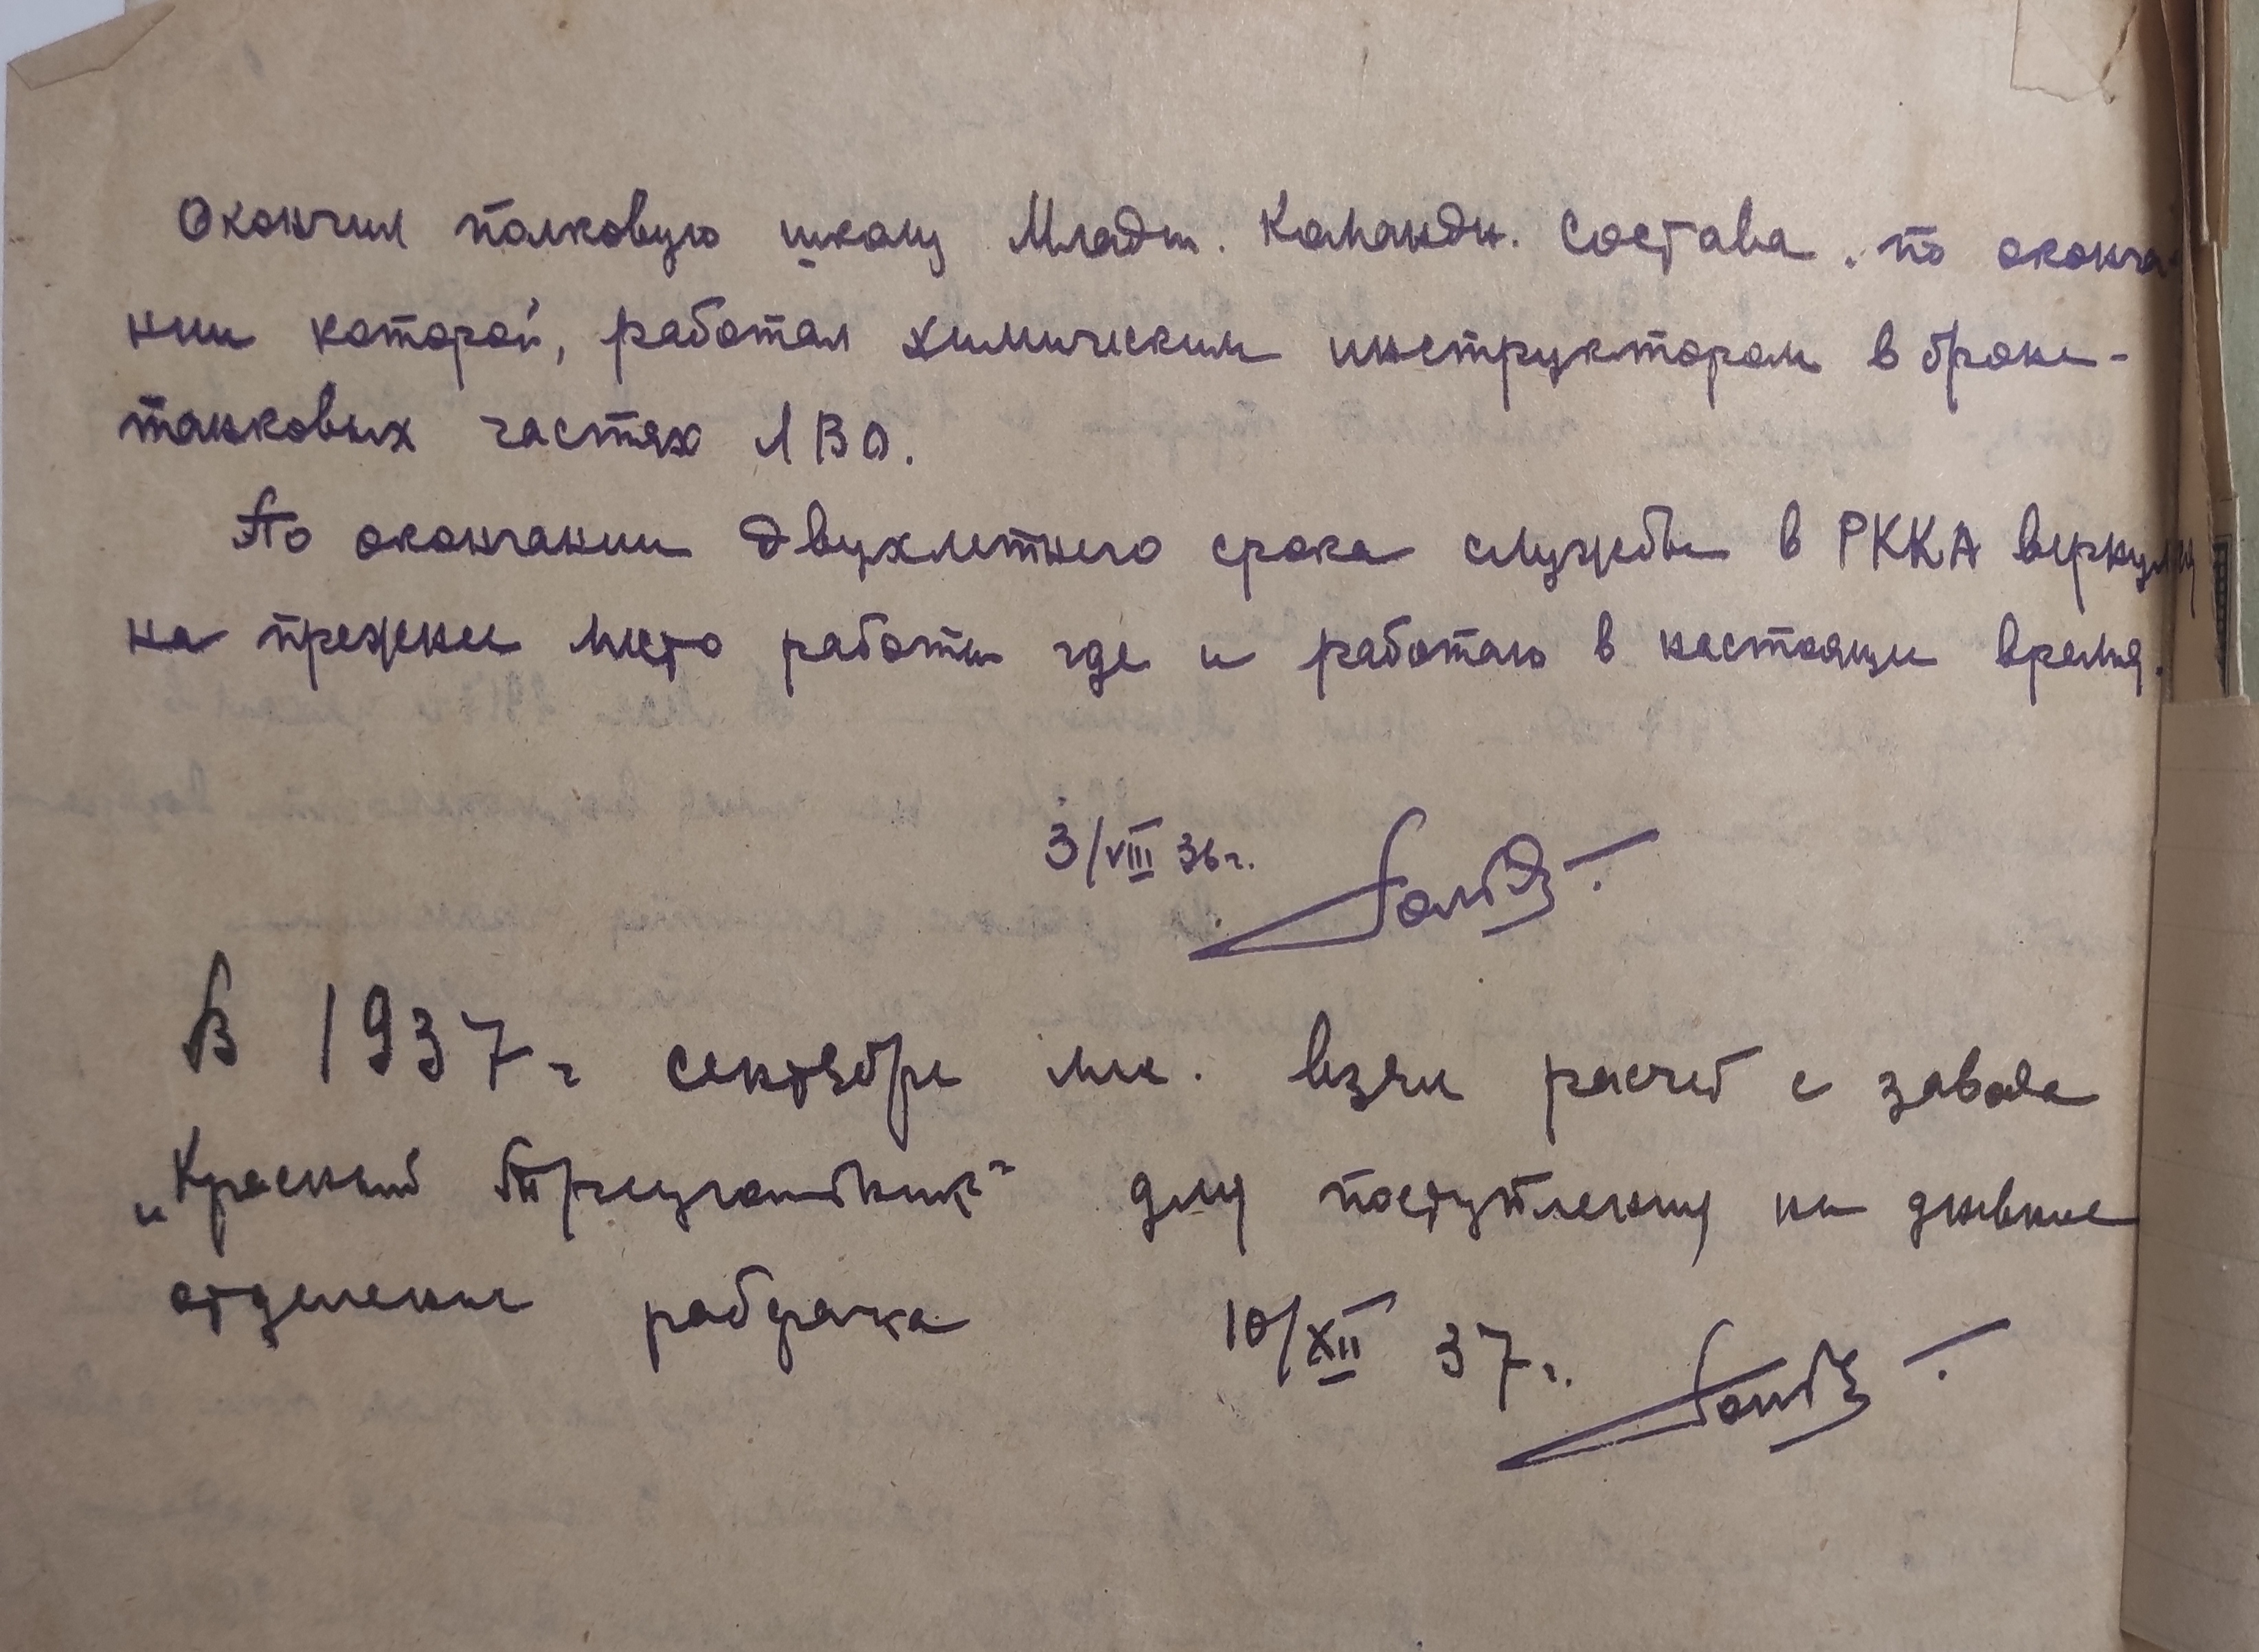 Окончил полковую школу Младш. Командн. Состава. по оконча-
нии которой, работал химическим инструктором в броне-
танковых частях ЛВО.
По окончании двухлетнего срока службы в РККА вернулся
на прежнее место работы где и работаю в настоящее время.
3/VIII 36 г.
В 1937 г сентябре м-це. взял расчет с завода
„Красный Треугольник" для поступления на дневное
отделение рабфака 10/XII 37 г.